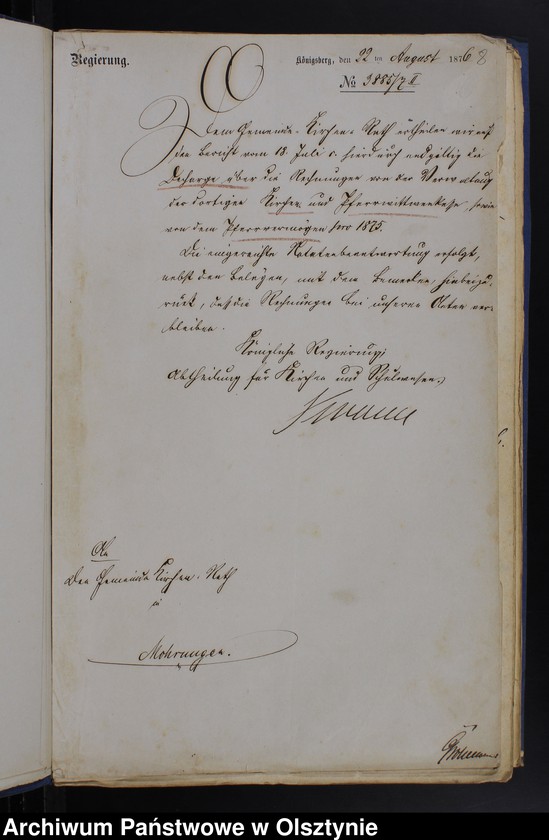 Regierung.
Königsberg, den 22 ten August 1876
8
No 3885/7 II
Dem Gemeinde-Kirchen-Rath ertheilen wir auf
den Bericht vom 18. Juli c. hierdurch endgültig die
Decharge über die Rechnungen von der Verwaltung
der dortigen Kirchen und Pfarrwittwenkasse, sowie
von dem Pfarrvermögen pro 1875.
Die eingereichte Notatenbeantwortung erfolgt,
nebst den Belägen, mit dem Bemerken hiebei zu-
rück, daß die Rechnungen bei unseren Akten ver-
bleiben.
Königliche Regierung;
Abtheilung für Kirchen und Schulwesen.
An
den Gemeinde Kirchen-Rath
in
Mohrungen.
Archiwum Państwowe w Olsztynie